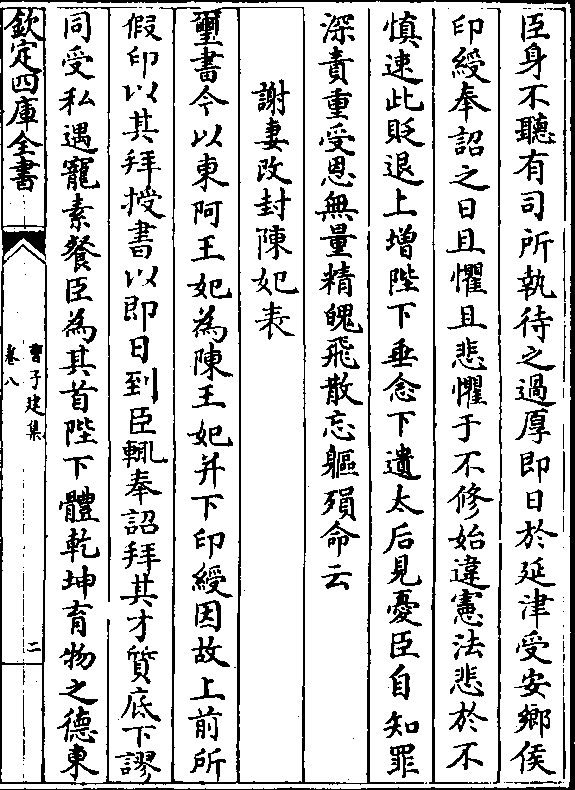 臣身不聽有司所執待之過厚即日於延津受安鄉侯
印綬奉詔之日且懼且悲懼于不修始違憲法悲於不
慎速此貶退上增陛下垂念下遺太后見憂臣自知罪
深責重受恩無量精魄飛散忘軀殞命云
謝妻改封陳妃表
璽書今以東阿王妃為陳王妃并下印綬因故上前所
假印以其拜授書以即日到臣輒奉詔拜其才質底下謬
同受私遇寵素餐臣為其首陛下體乾坤育物之德東
欽定四庫全書
曹子建集
卷八
二